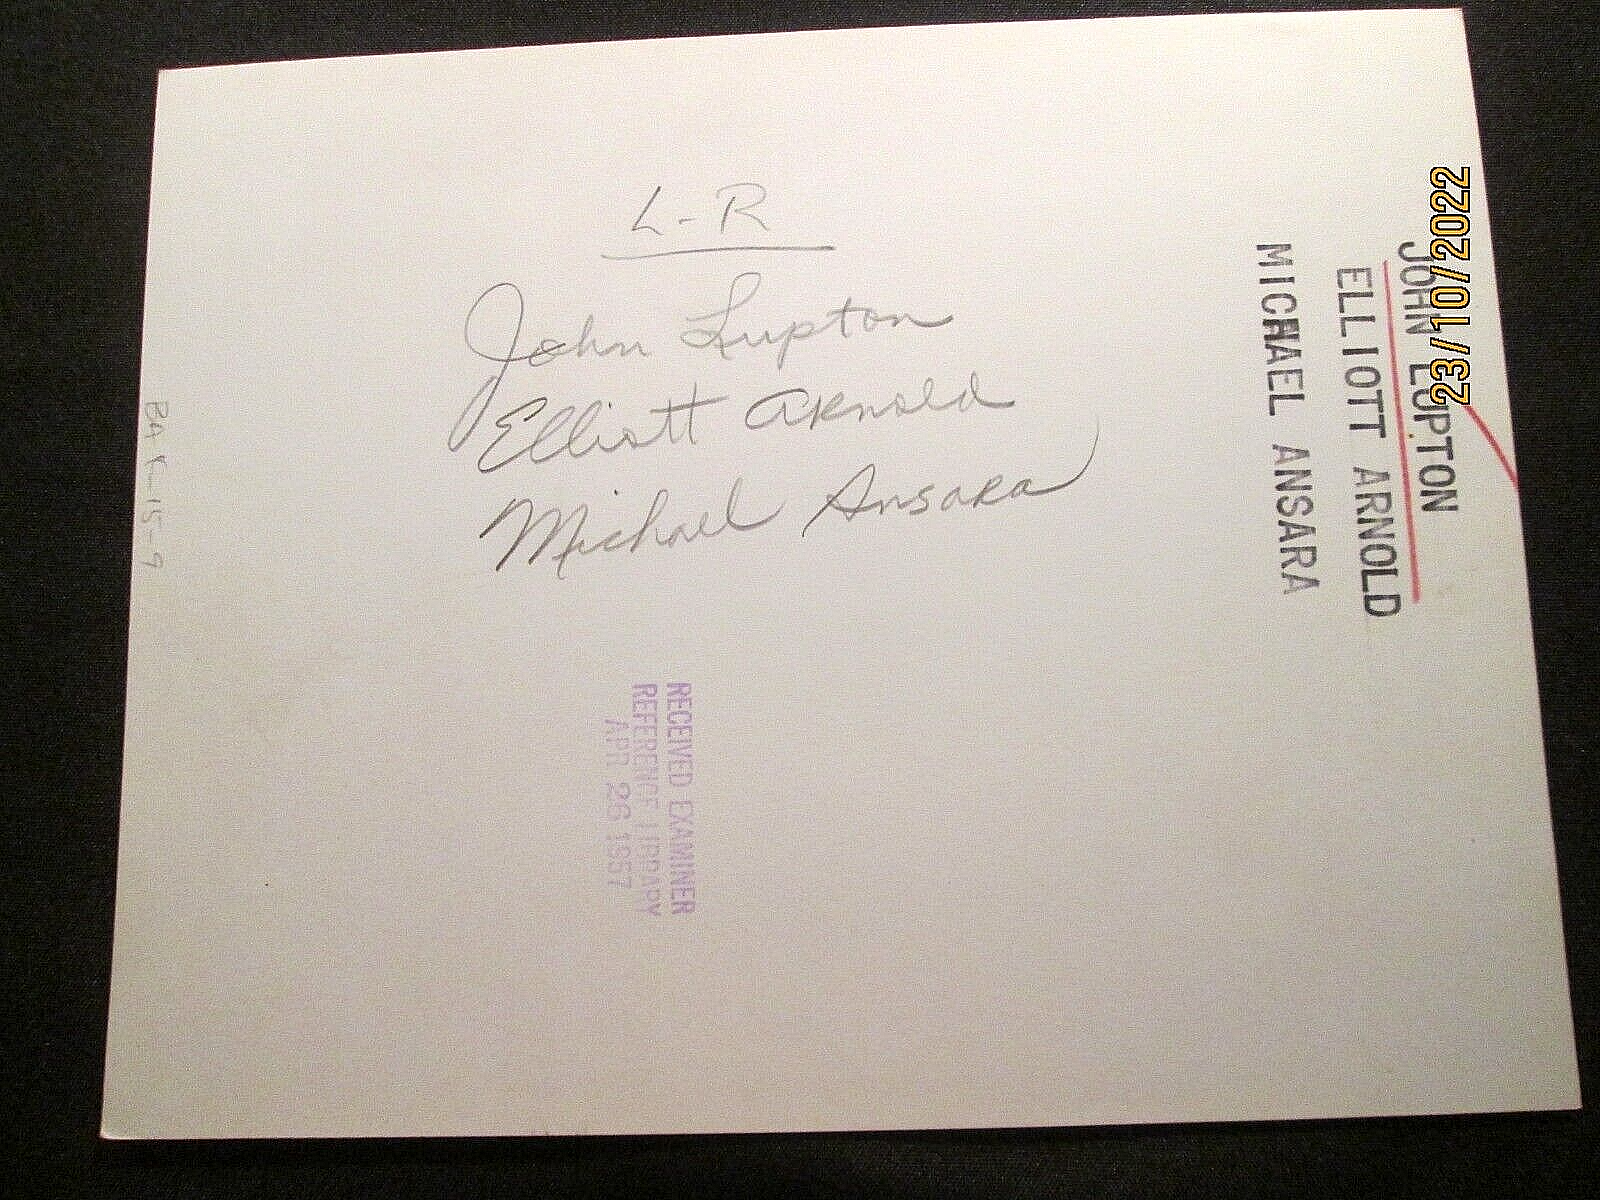 L-R
John Lupton
Elliott Arnold
Michael Ansara
JOHN LUPTON
ELLIOTT ARNOLD
MICHAEL ANSARA
23/10/2022
RECEIVED EXAMINER
REFERENCE LIBRARY
APR 26 1957
15-9